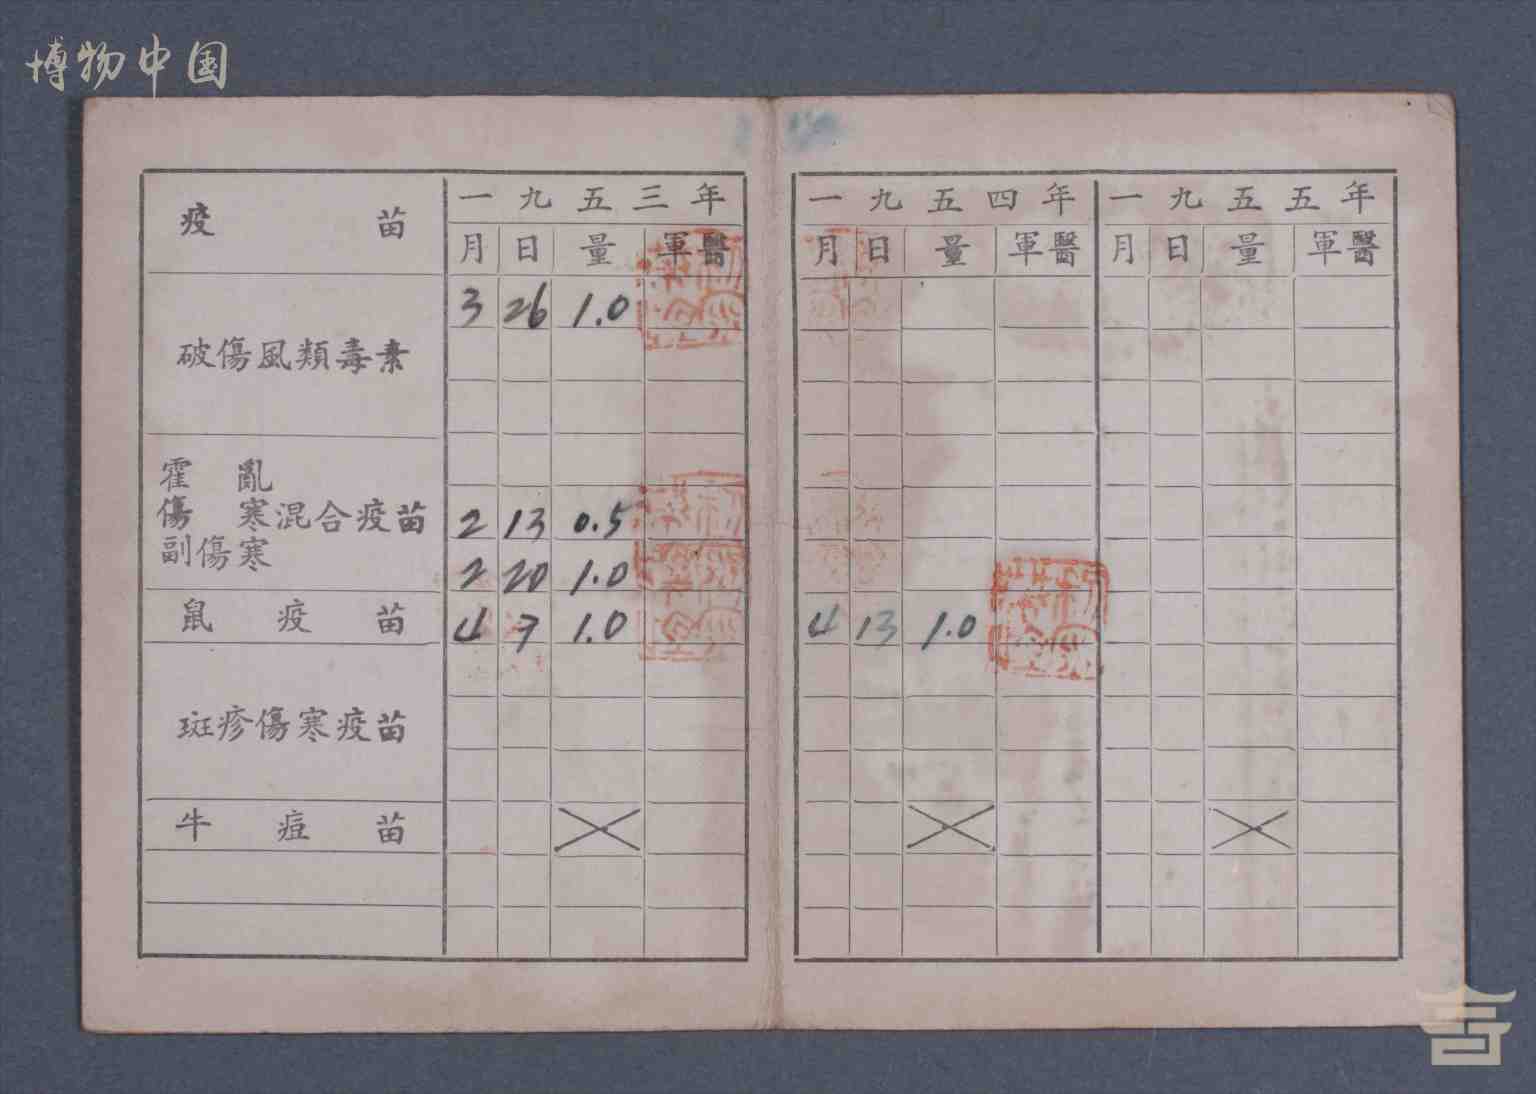 博物中国
疫苗 一九五三年 一九五四年 一九五五年
月 日 量 軍醫 月 日 量 軍醫 月 日 量 軍醫
破傷風類毒素 3 26 1.0
霍亂
傷寒混合疫苗 2 13 0.5
副傷寒 2 20 1.0
鼠疫苗 4 7 1.0 4 13 1.0
斑疹傷寒疫苗
牛痘苗